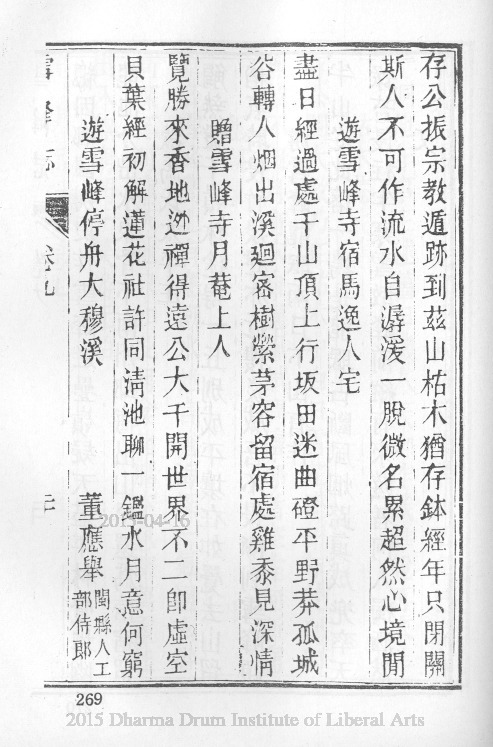 存公振宗教遁跡到茲山枯木猶存鉢經年只閉關
斯人不可作流水自潺湲一脫微名累超然心境閒
遊雪峰寺宿馬逸人宅
盡日經過處千山頂上行坂田迷曲磴平野莽孤城
谷轉人烟出溪廻密樹縈茅容留宿處雞黍見深情
贈雪峰寺月菴上人
覽勝來香地逃禪得遠公大千開世界不二卽虛空
貝葉經初解蓮花社許同淸池聊一鑑水月意何窮
遊雪峰停舟大穆溪
董應舉
閩縣人工
部侍郎
雪峰志
卷九
2015-04-16
269
2015 Dharma Drum Institute of Liberal Arts